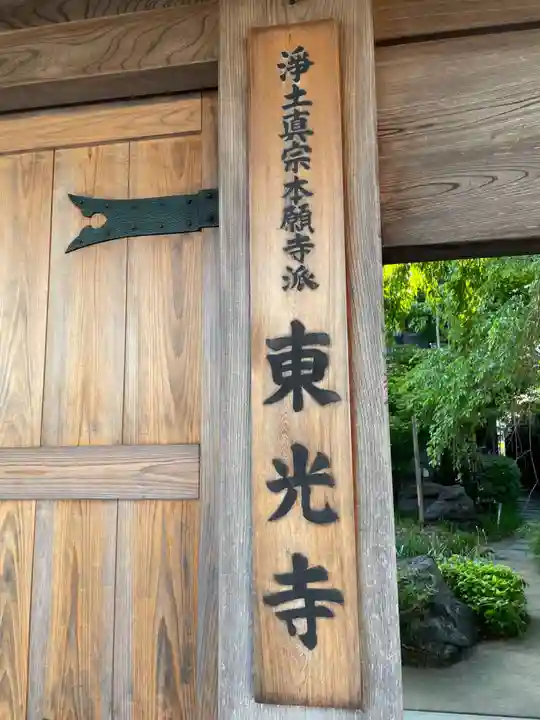 淨土真宗本願寺派
東光寺